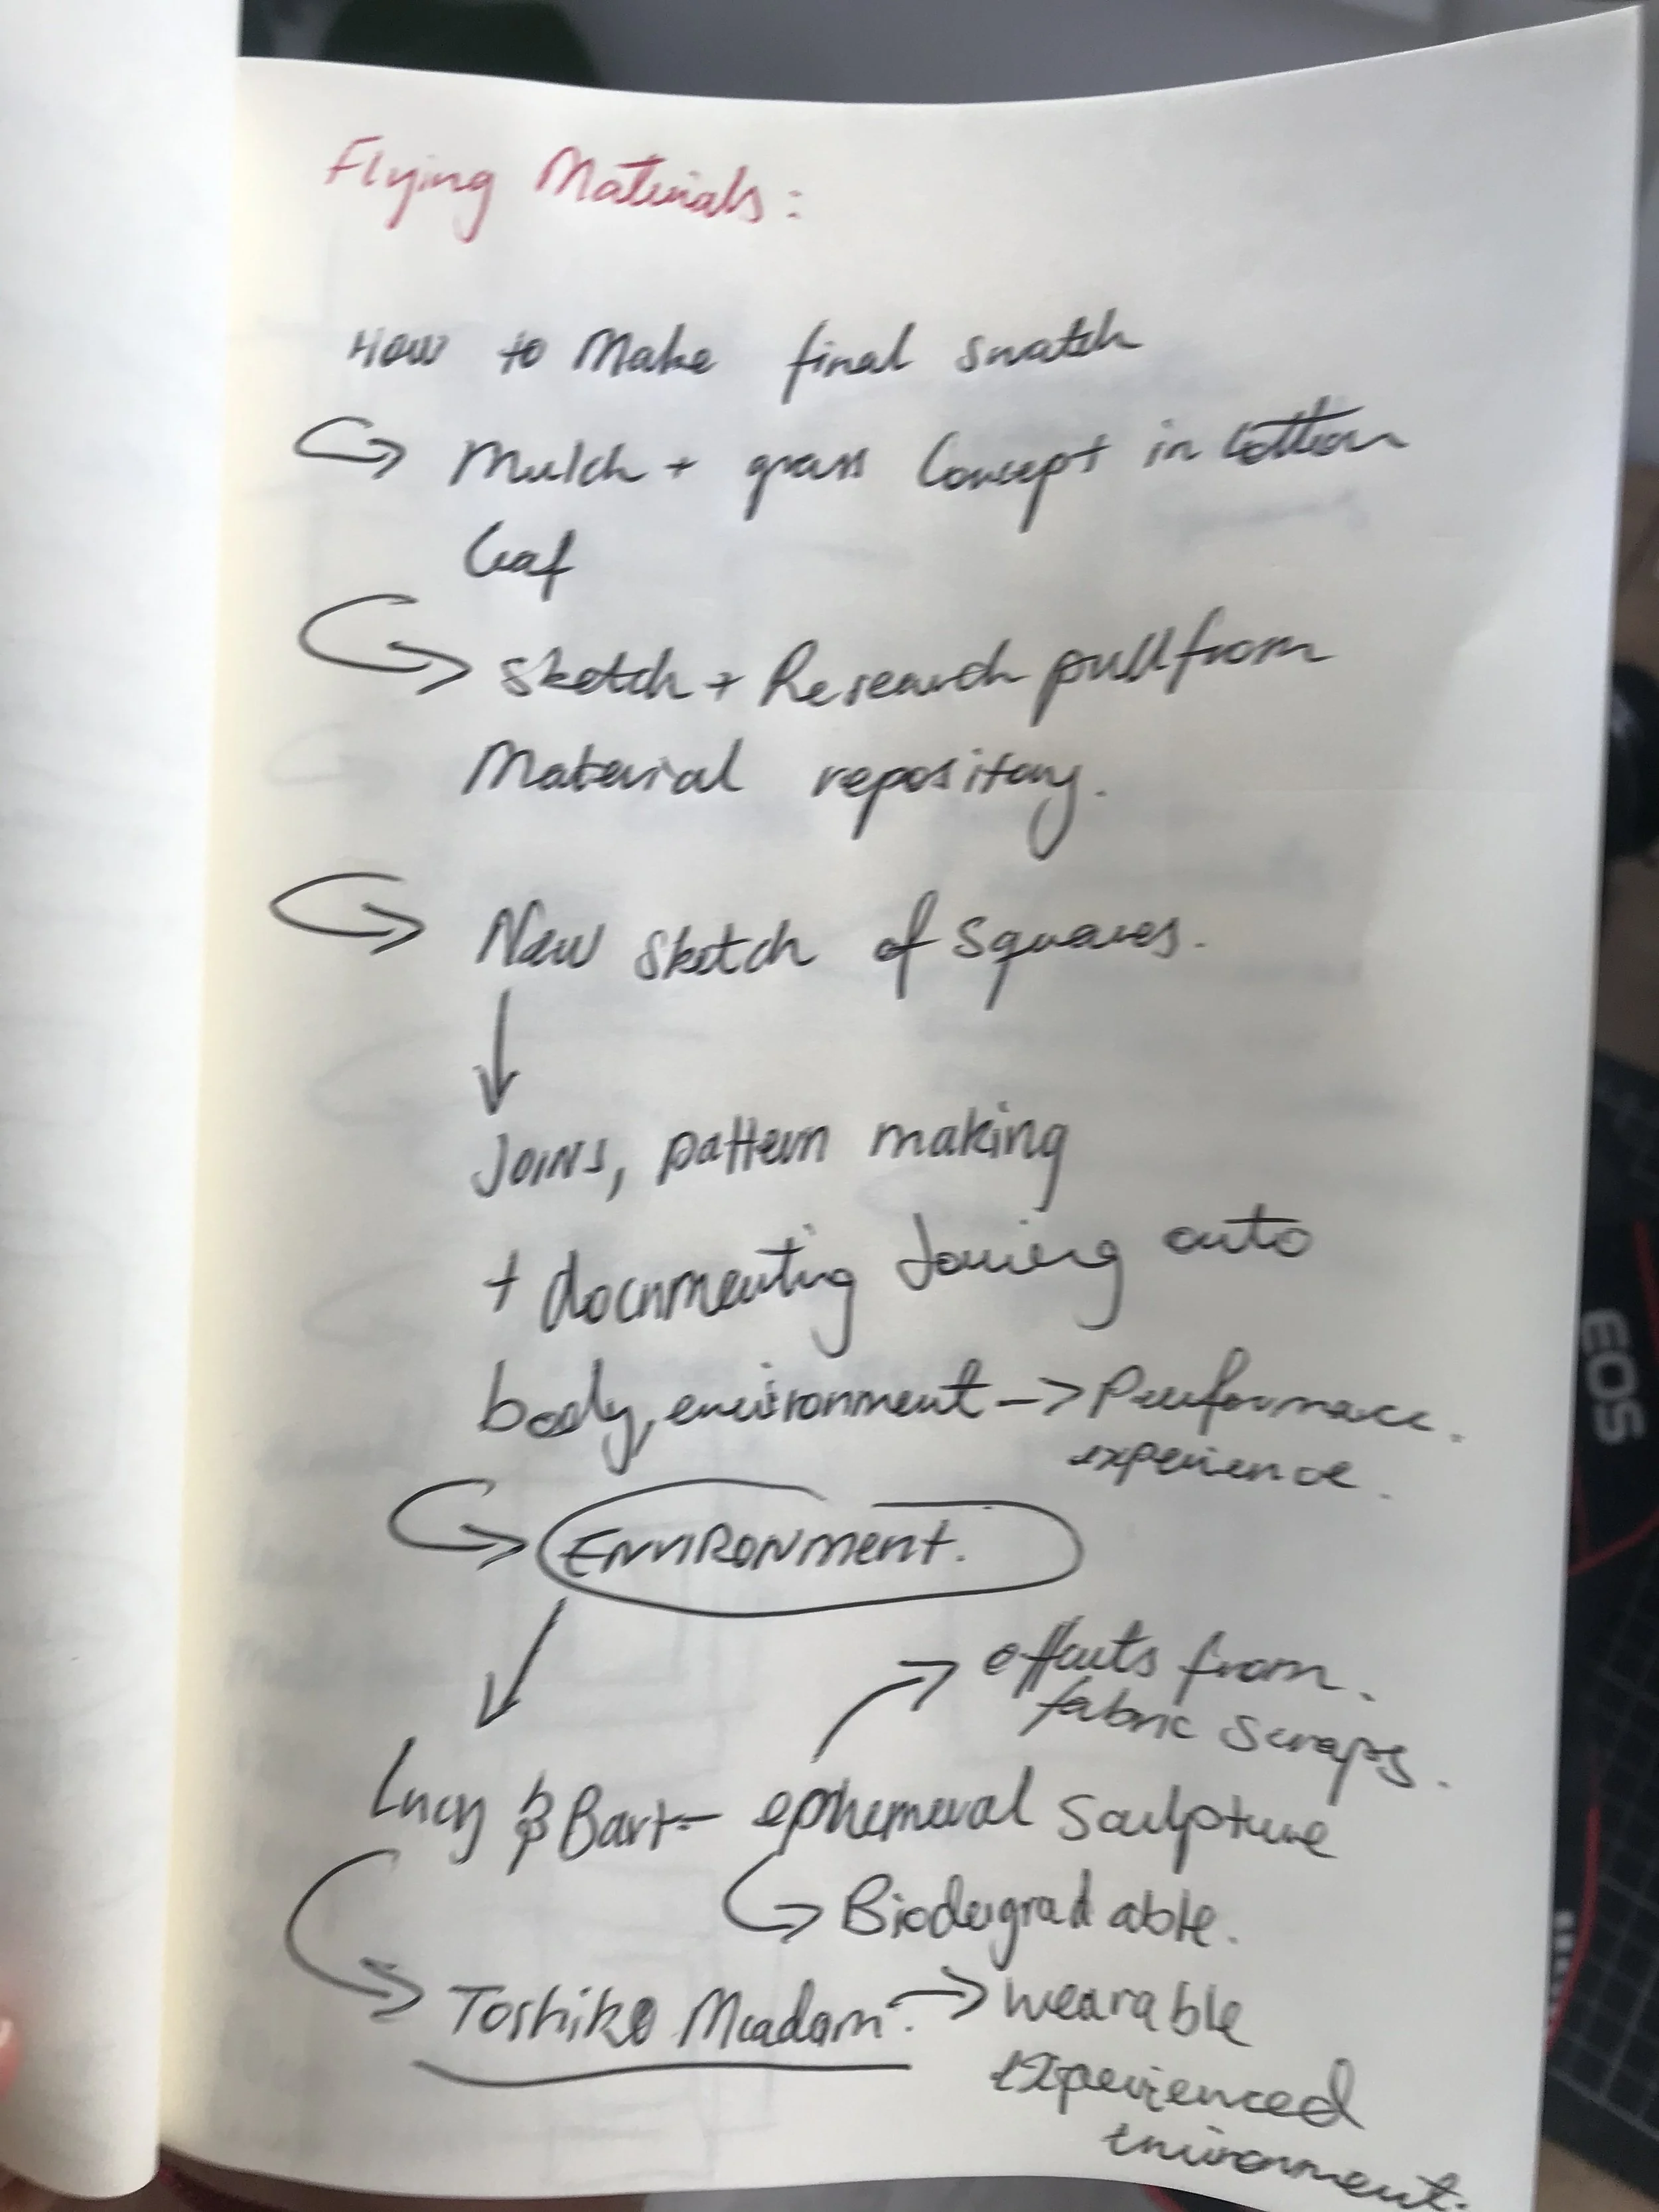 Flying Materials:
How to Make final swatch
Mulch + grass Concept in Cotton
leaf
Sketch + Research pull from
Material repository.
New sketch of squares.
JOINS, pattern making
+ documenting Joining onto
body, environment -> Performance.
experience.
ENVIRONMENT.
effects from.
fabric scraps.
Lucy & Bart - ephemeral Sculpture
Biodegradable.
Toshiko -> wearable
experienced
environment.
EOS